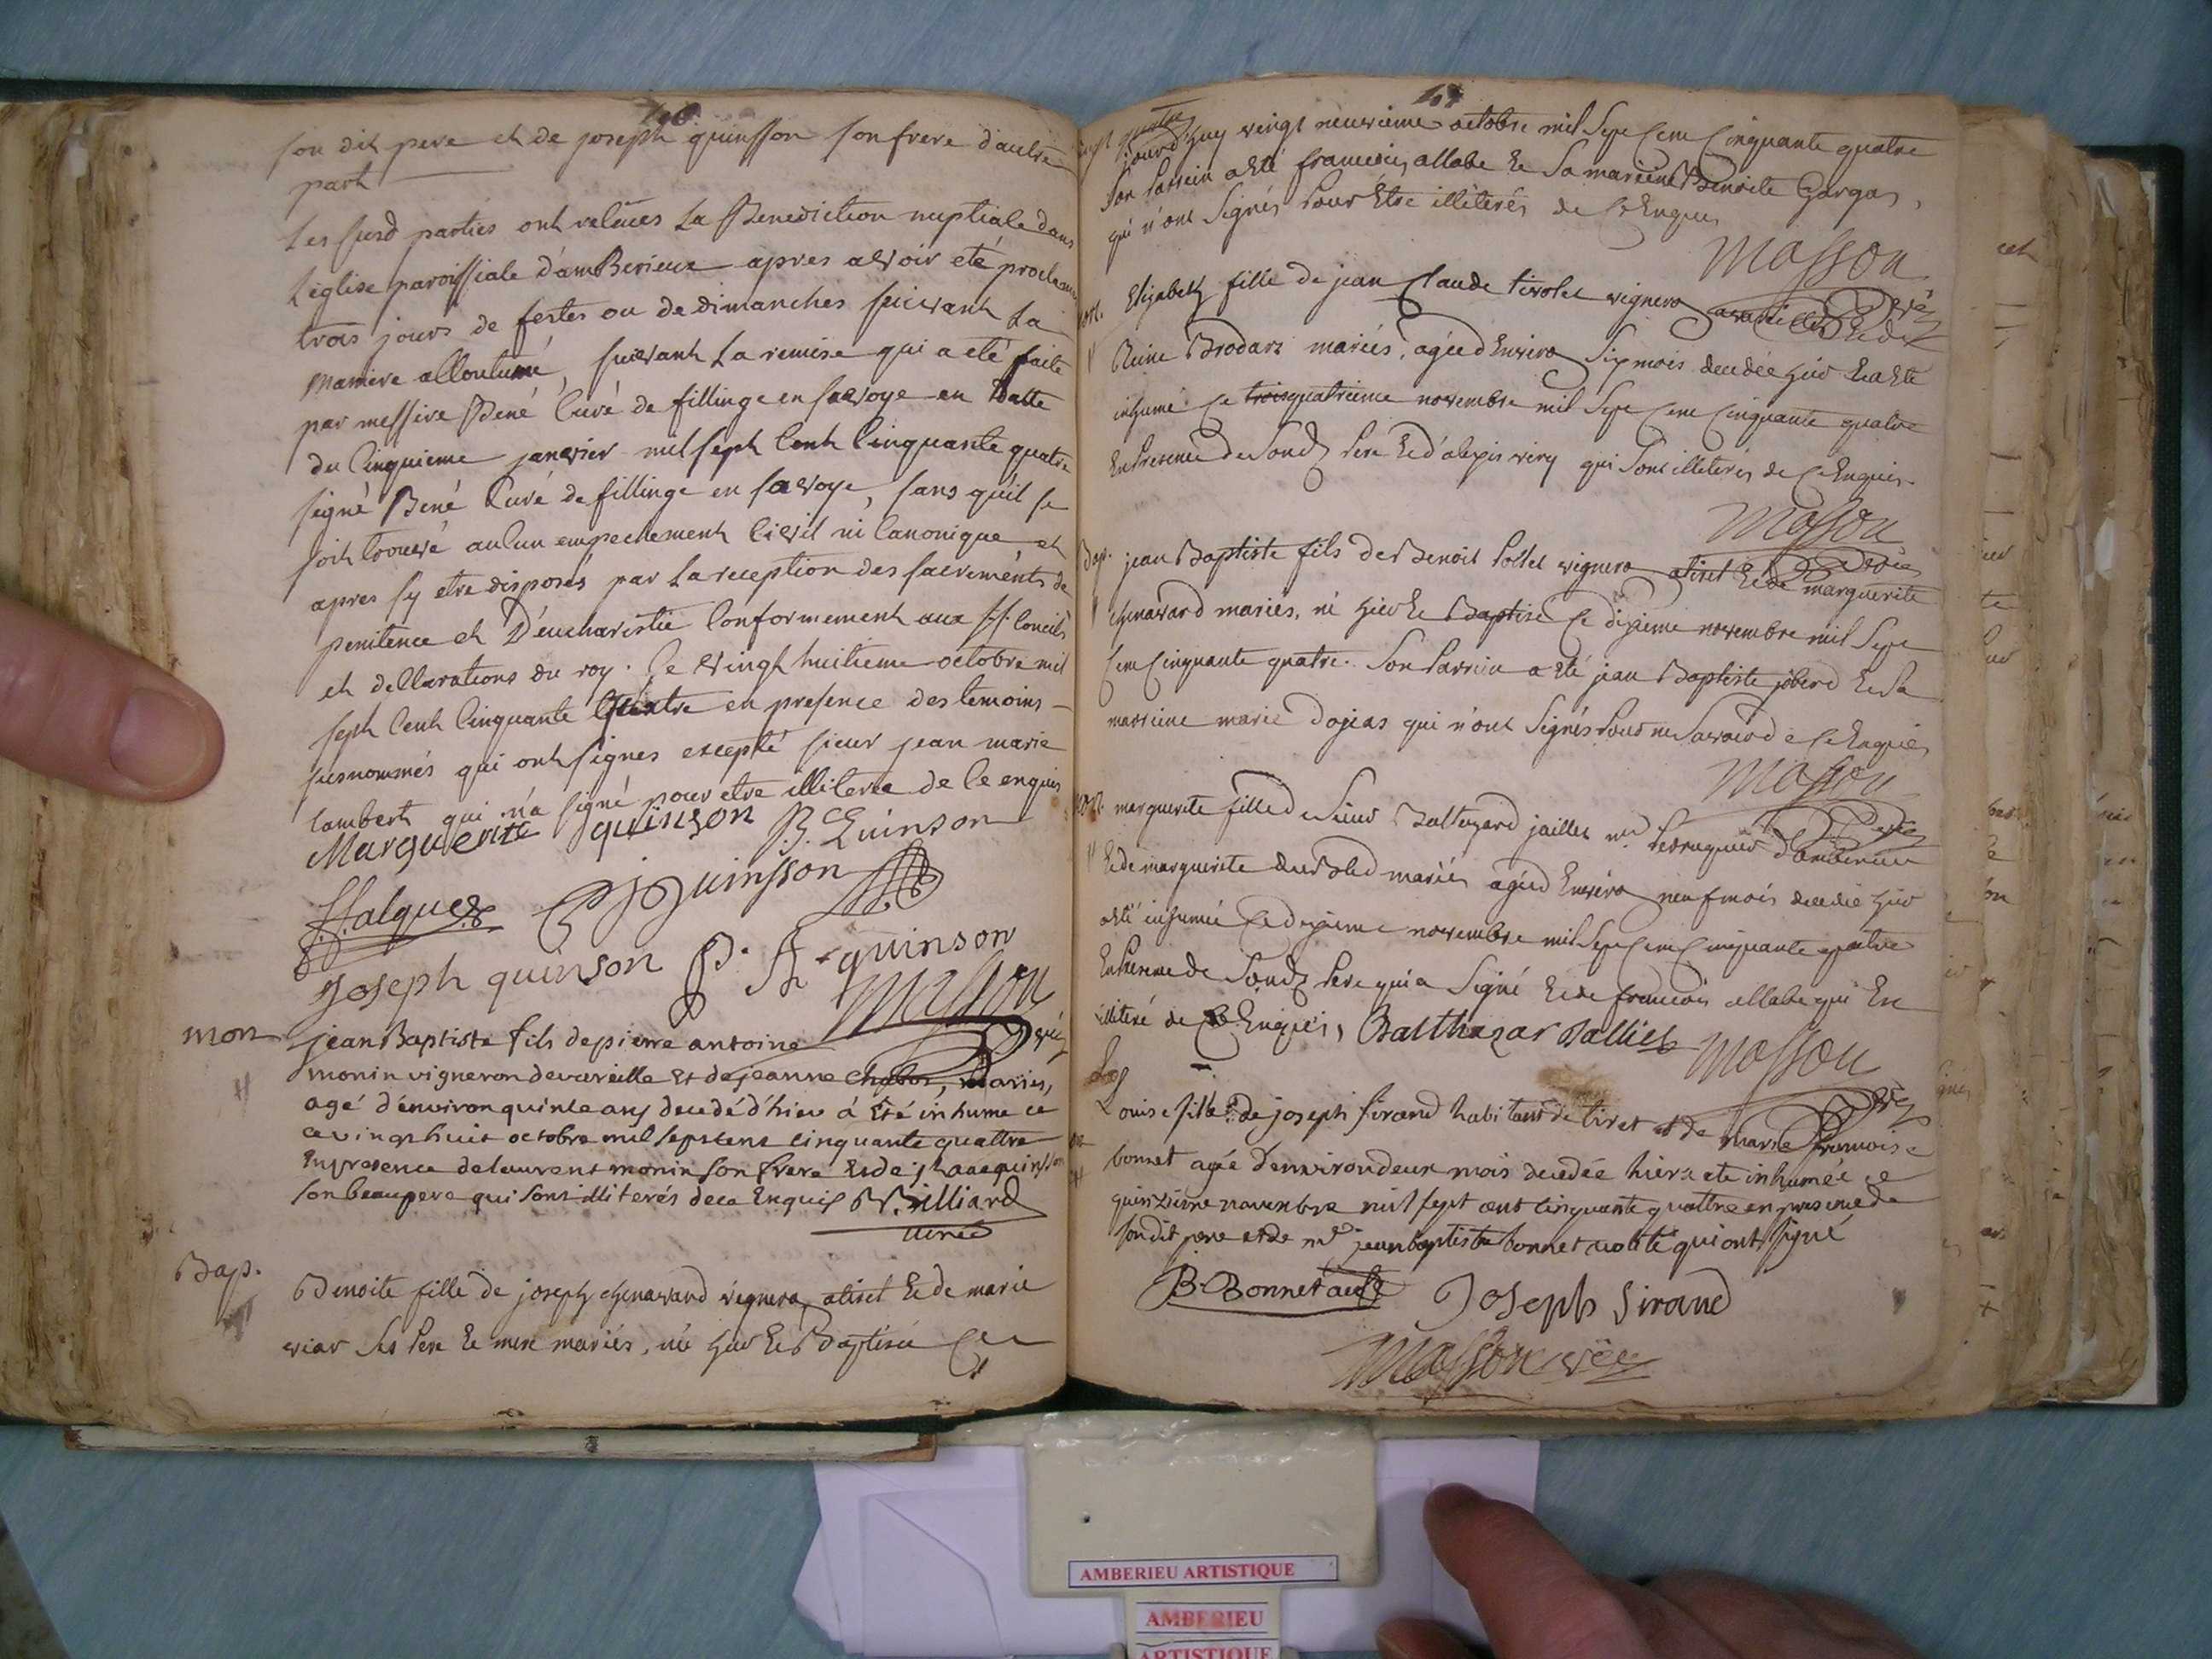 son dit pere et de joseph quinsson son frere d'aultre
part
Les susd parties ont reçües La Benediction nuptiale dans
L'église paroissiale d'amBerieux apres avoir eté proclamés
trois jours de festes ou de dimanches suivant La
maniere accoutumé, suivant La remise qui a eté faite
par messire Bené Curé de fillinge en savoye en Datte
du Cinquieme janvier mil sept Cent Cinquante quatre
signé Bené Curé de fillinge en savoye, sans qu'il se
soit trouvé aucun empechement Civil ni Canonique et
apres s'y etre disposés par La reception des sacrements de
penitence et D'eucharistie Conformement aux SS. Conciles
et declarations du roy. Ce vingt huitieme octobre mil
sept Cent Cinquante quatre en presence des temoins
susnommés qui ont signes excepté sieur jean marie
lambert qui n'a signé pour etre illiteré de Ce enquis
Marguerite quinson B. Quinson
Joseph quinson P. quinson
Masson
mor
jean Baptiste fils de pierre antoine
monin vigneron de vareille et de jeanne mariés,
agé d'environ quinse ans decedé d'hier á Eté inhume ce
ce vingt huit octobre mil sept cens cinquante quattre
En presence de laurent monin son frere Et de
son beaupere qui sont illiterés de ce Enquis Billiard
curé
Bap.
Benoite fille de joseph chenavard vigneron atiret Et de marie
viar Ses Pere Et mere mariés, née hier Et Baptisée Ce
jourd'huy vingt neuvieme octobre mil Sept Cent Cinquante quatre
Son Parrein a Eté francois allabe Et Sa marreine Benoite Gargas,
qui n'ont Signés Pour Etre illiterés de Ce Enquis
Masson
Elizabeth fille de jean Claude tivolet vigneron
Reine Brodard mariés, agéed'Environ Six mois decedée hier Et a Eté
inhumé Ce quatrieme novembre mil Sept Cent Cinquante quatre
En Presence de Sond Pere Et d'alexis viry qui Sont illiterés de Ce Enquis.
Masson
Bap.
jean Baptiste fils de Benoit Pollet vigneron atiret Et de marguerite
chenavard mariés, né hier Et Baptisé Ce dixieme novembre mil Sept
Cent Cinquante quatre. Son Parrein a Eté jean Baptiste joberd Et Sa
marreine marie dojeas qui n'ont Signés Pour ne Savoir de Ce Enquis
Masson
mor.
marguerite fille de Sieur Baltazard jaillet md Perruquier d'amberieux
Et de marguerite mariés agéed'Environ neuf mois decedée hier
a Eté inhumée Ce dixieme novembre mil Sept Cent Cinquante quatre
En Presence de Sond Pere qui a Signé Et de francois allabe qui Est
illiteré de Ce Enquis, Balthazar Jalliet Masson
Louise fille de joseph sirand habitant de tiret et de marie francoise
bonnet agée d'environ deux mois decedée hier a ete inhumée ce
quinzieme novembre mil sept cent cinquante quattre en presence de
son dit pere et de mr jean baptiste bonnet qui ont signé
B. Bonnet Joseph Sirand
Masson
AMBERIEU ARTISTIQUE
AMBERIEU
ARTISTIQUE